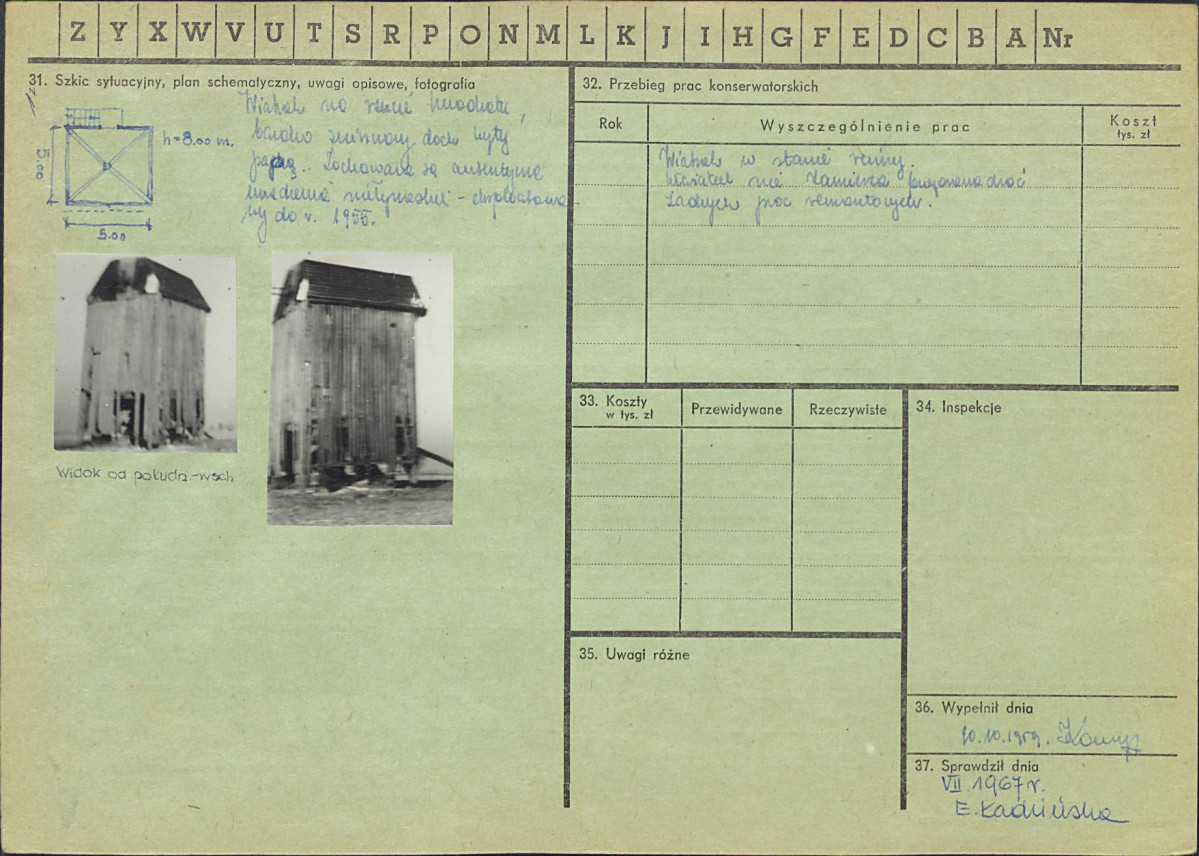 Z Y X W V U T S R P O N M L K J I H G F E D C B A Nr
31. Szkic sytuacyjny, plan schematyczny, uwagi opisowe, fotografia
Wiatrak na rzucie kwadratu,
bardzo zniszczony, dach kryty
papą. Zachowane są autentyczne
urządzenia
- eksploatowa-
ny do r. 1955.
h=8.00 m.
5.00
5.00
Widok od połudn.-wsch.
32. Przebieg prac konserwatorskich
Rok
Wyszczególnienie prac
Koszt
tys. zł
Wiatrak w stanie ruiny.
właściciel nie zamierza przeprowadzać
żadnych prac remontowych.
33. Koszty
w tys. zł
Przewidywane
Rzeczywiste
34. Inspekcje
35. Uwagi różne
36. Wypełnił dnia
10.10.1959.
37. Sprawdził dnia
VII 1967 r.
E. Kadzińska